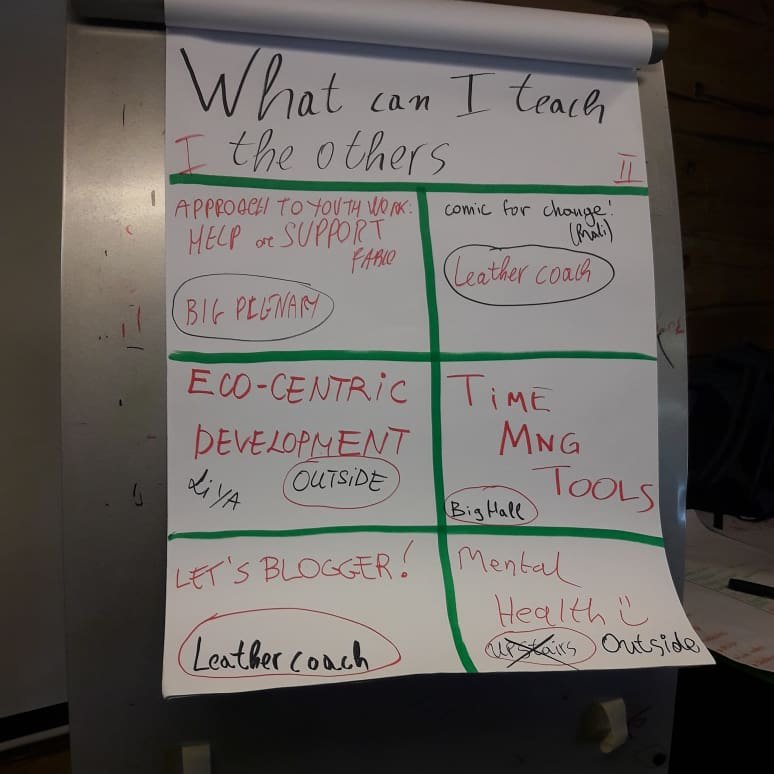 What can I teach
I the others II
APPROACH TO YOUTH WORK:
HELP or SUPPORT
FABIO
BIG PLENARY
comic for change!
Leather coach
ECO-CENTRIC
DEVELOPMENT
LiVA
OUTSIDE
TiME
MNG
TOOLS
Big Hall
LET'S BLOGGER!
Leather coach
Mental
Health
upstairs Outside